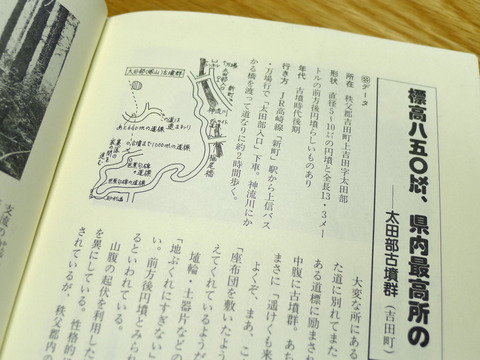 標高八五〇㍍、県内最高所の
――太田部古墳群(吉田町)
データ
所在 秩父郡吉田町上吉田字太田部
形状 直径5~10㍍の円墳と全長13・3メー
トルの前方後円墳らしいものあり
年代 古墳時代後期
行き方 JR高崎線「新町」駅から上信バス
・万場行で「太田部入口」下車。神流川にか
かる橋を渡って道なりに約2時間歩く。
大変な所にある
た道に別れてまた
ある道標に励まされ
中腹に古墳群。あち
まさに「遥けくも来
よくぞ、まあ、こ
「座布団を敷いたよう
えてくれているようだ
埴輪・土器片などの
「地ぶくれにすぎない
い。前方後円墳とみら
るといわれている。
山腹の起伏を利用した
を異にしている。性格的
されているが、秩父郡市
太田部(楢山)古墳群
あと640mの道標
古墳まで1000mの道標
至新町
神流川